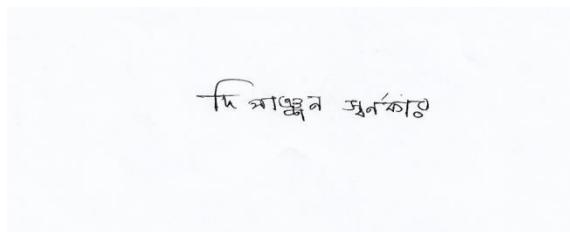 দিপাঞ্জন স্বর্নকার